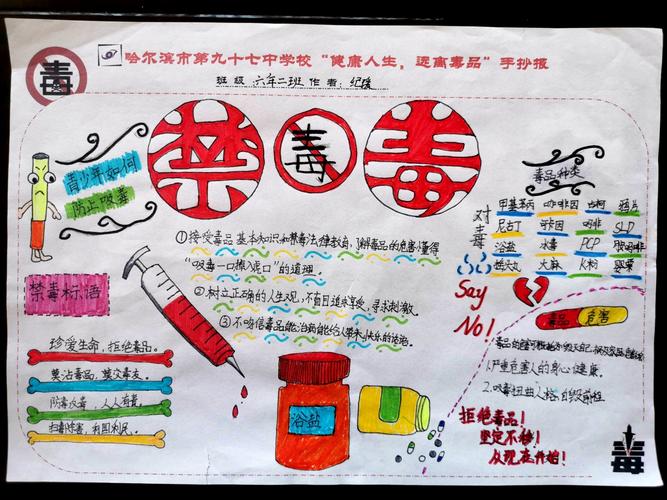 毒
哈尔滨市第九十七中学校“健康人生,远离毒品”手抄报
班级:六年二班 作者:纪媛
禁 毒 毒
青少年如何
防止吸毒
①接受毒品基本知识和禁毒法律教育,了解毒品的危害,懂得
“吸毒一口,掉入虎口”的道理。
②树立正确的人生观,不盲目追求享受,寻求刺激。
③不听信毒品能治病,能给人带来快乐的
禁毒标语
珍爱生命,拒绝毒品。
莫沾毒品,莫交毒友。
防毒反毒,人人有责。
扫毒除害,利国利民。
浴盐
毒品种类
对毒
甲基苯丙 咖啡因 古柯 鸦片
尼古丁 可卡因 吗啡
浴盐 冰毒 PCP
大麻 K粉 罂粟
Say
No!
毒品 危害
1.严重危害人的身心健康。
2.吸毒扭曲人格,自毁前程
拒绝毒品!
坚定不移!
从现在开始!
毒